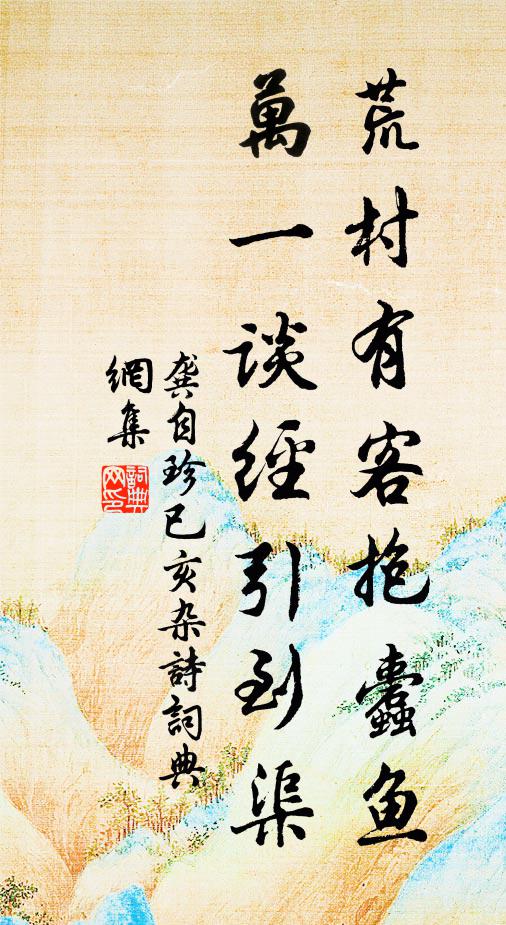 荒村有客抱蠹鱼
萬一谈經引到渠
龚自珍己亥杂詩詞典
網集
詞典
网印